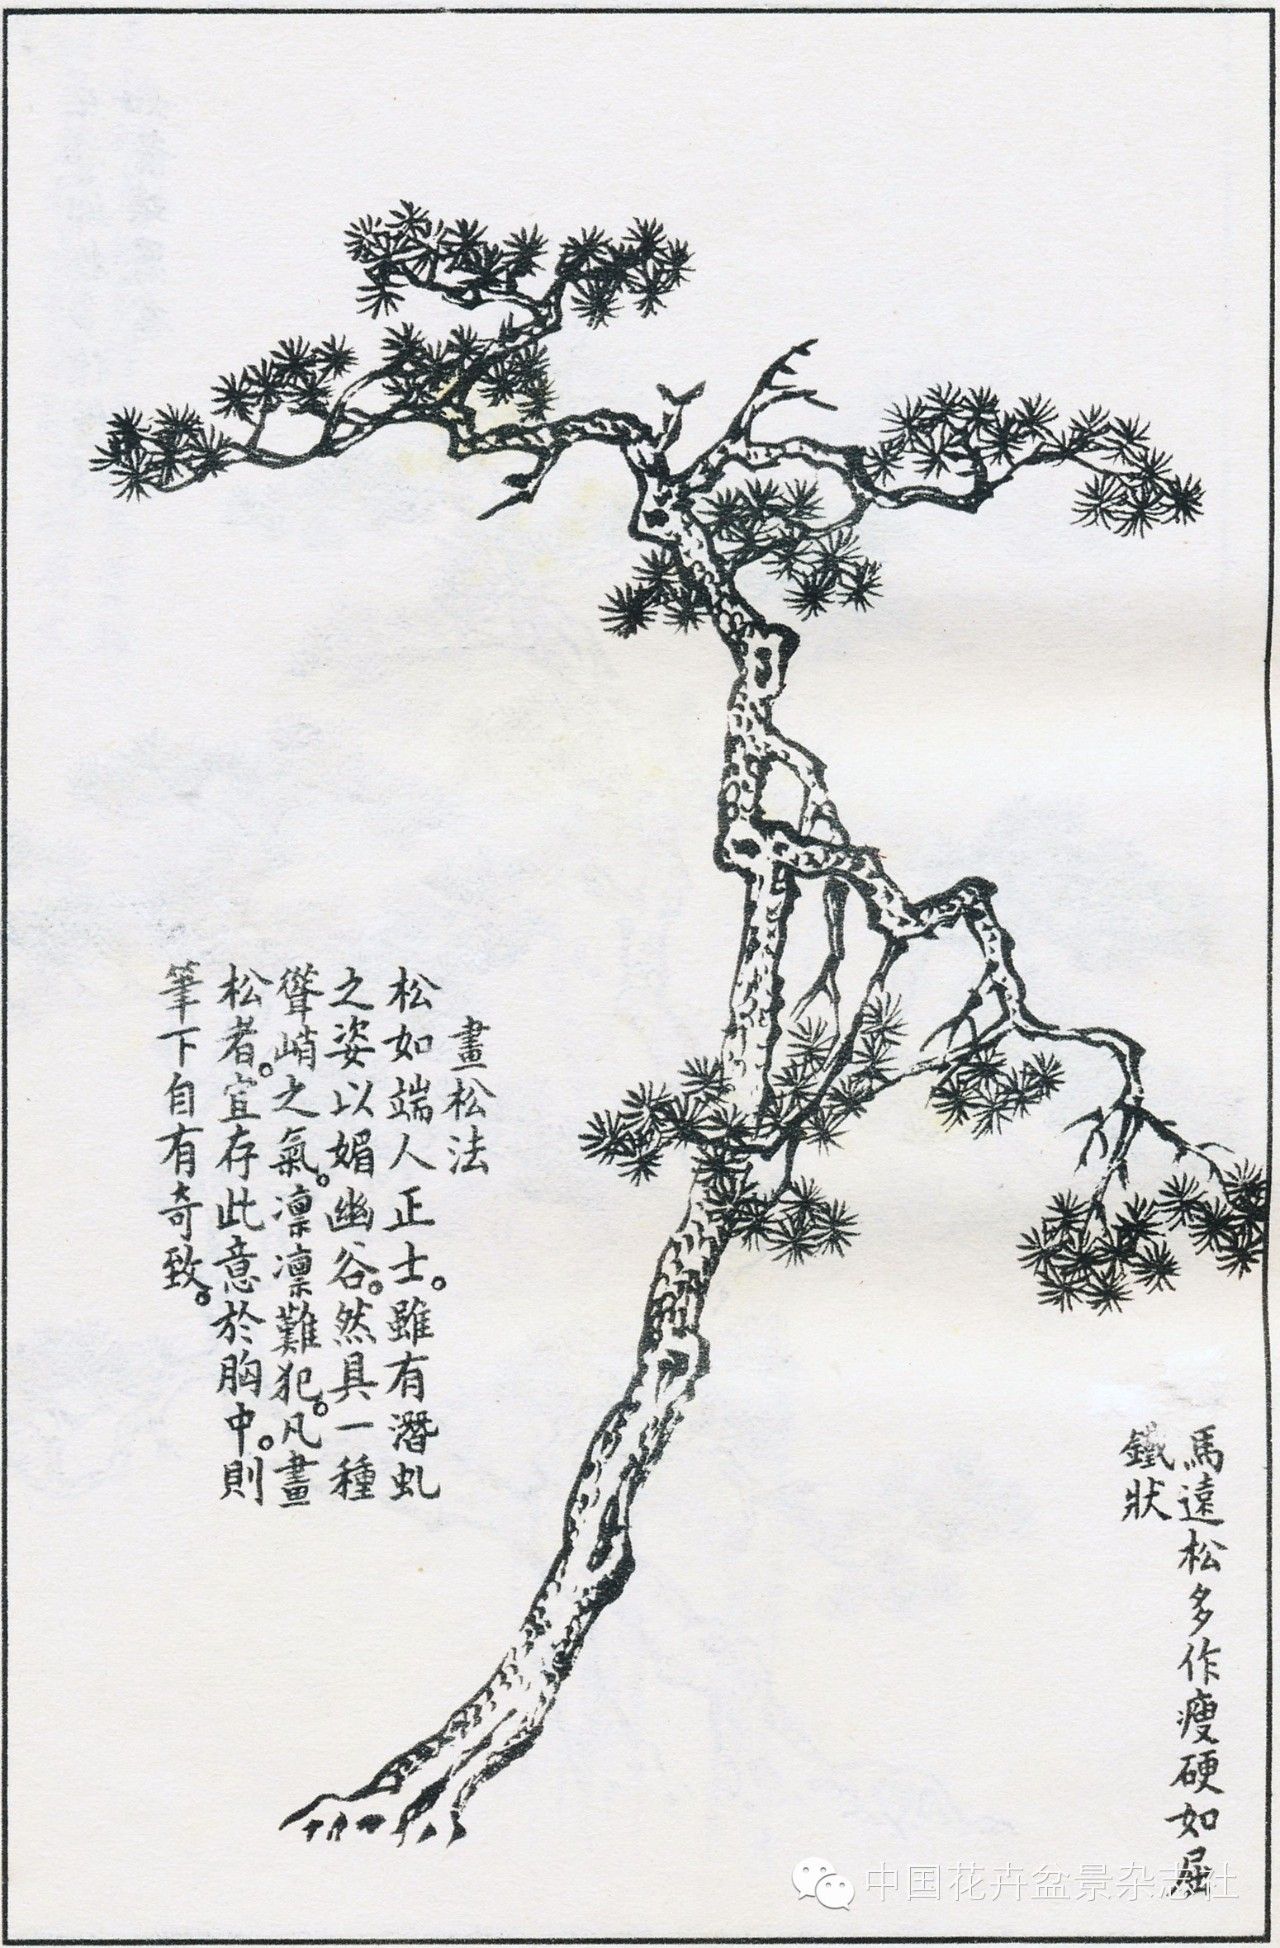 馬遠松多作瘦硬如屈
鐵狀
畫松法
松如端人正士。雖有潛虬
之姿以媚幽谷。然具一種
聳峭之氣。凛凛難犯。凡畫
松者。宜存此意於胸中。則
筆下自有奇致。
中国花卉盆景杂志社